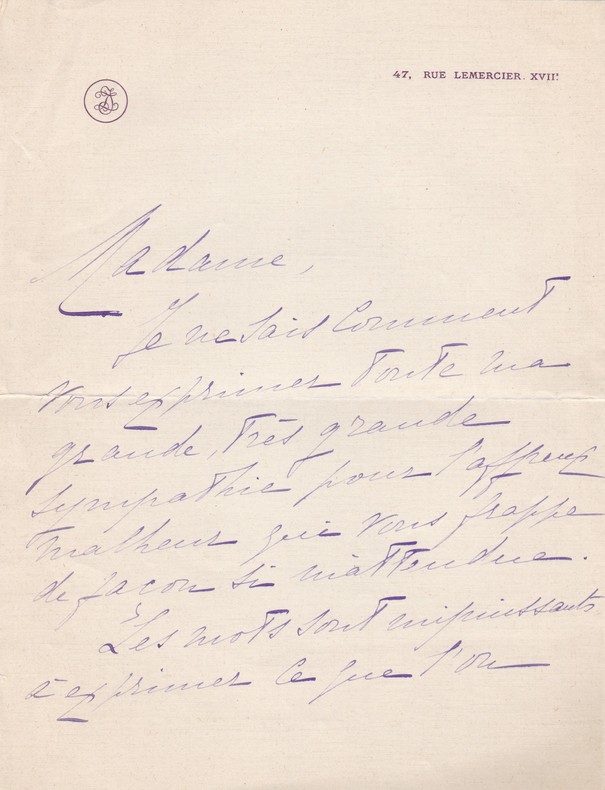 47, RUE LEMERCIER. XVIIᵉ
Madame,
Je ne sais comment
vous exprimer toute ma
grande, très grande
sympathie pour l'affreux
malheur qui vous frappe
de façon si inattendue.
Les mots sont impuissants
à exprimer ce que l'on